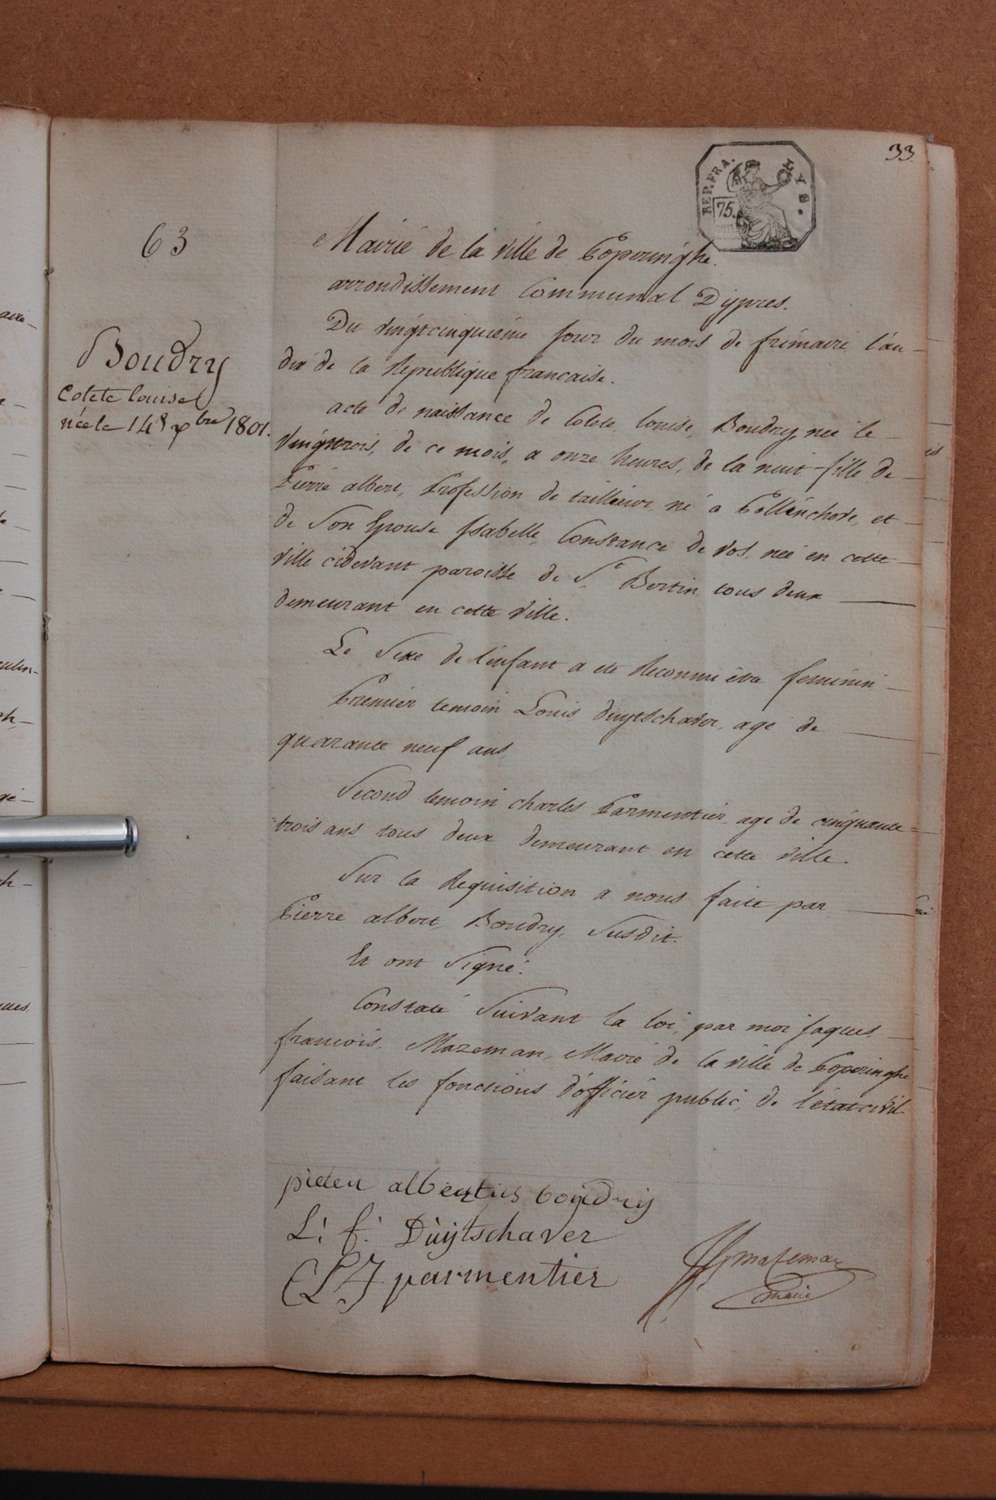 33
REP. FRA.
75.
LYS.
63
Boudry
Colete louise
née le 14 xbre 1801.
Mairié de la ville de Poperinghe.
arrondissement Communal Dÿpres.
Du vingtcinquieme jour du mois de frimaire l'an
dix de la Republique francaise.
acte de naissance de Colete, louise, Boudry, née le
vingttrois, de ce mois, a onze heures, de la nuit fille de
Pierre albert, Profession de tailleur né a Pollinchove, et
de Son Epouse Isabelle, Constance de vos, née en cette
ville cidevant paroisse de St. Bertin tous deux
demeurant en cette ville.
Le Sexe de l'enfant a été Reconnu être feminin
Premier temoin Louis duytschaver, agé de
quarante neuf ans
Second temoin charles Parmentier, age de cinquante
trois ans tous deux demeurant en cette ville.
Sur la Requisition a nous faite par
Pierre albert, Boudry, Susdit.
Et ont Signé.
Constaté Suivant la loi, par moi Jaques
francois, Mazeman, Maire de la ville de Poperinghe
faisant les fonctions d'officier public, de l'état civil
pieter albertus boudry
L: f: Duytschaver
parmentier
mazeman
maire